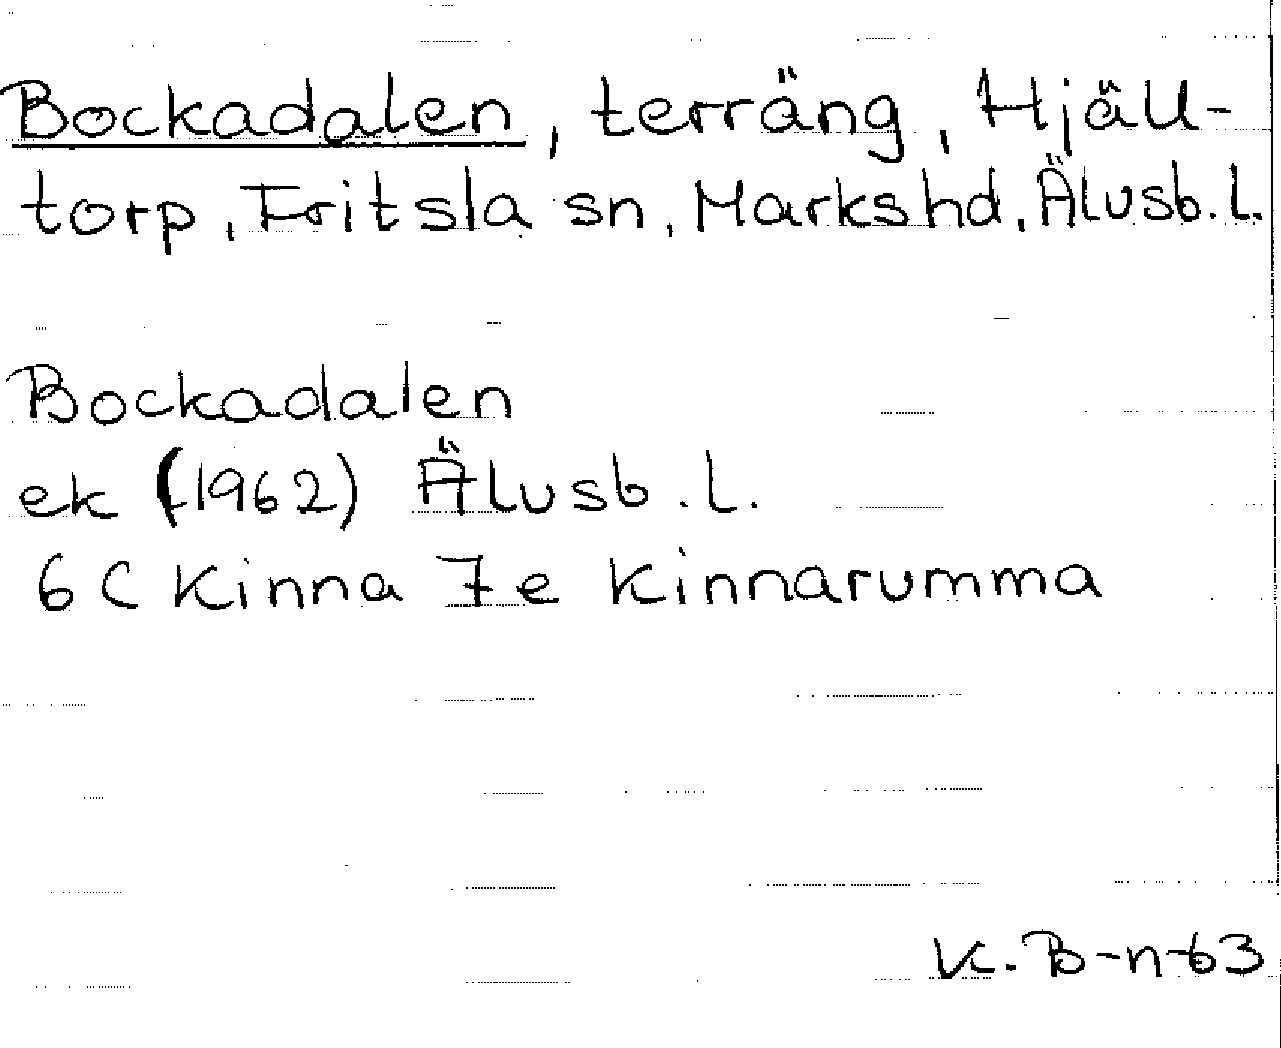 Bockadalen, terräng, Hjäll-
torp, Fritsla sn, Marks hd, Älvsb. l.
Bockadalen
ek (1962) Älvsb. l.
6 C Kinna 7e Kinnarumma
K. B-n 63